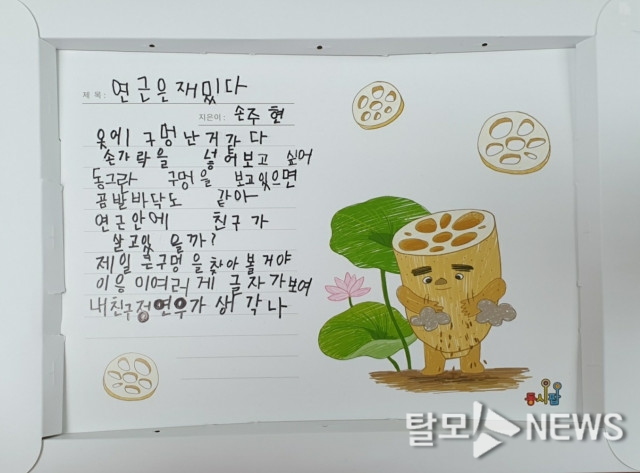 제 목 : 연근은 재밌다
지은이 : 손주현
옷에 구멍난거 같다
손가락을 넣어보고 싶어
동그라 구멍을 보고있으면
곰발바닥도 같아
연근안에 친구가
살고있을까?
제일 큰구멍을 찾아볼거야
이응이 여러게 글자가보여
내친구정연우가 생각나
동시팝
탈모 NEWS